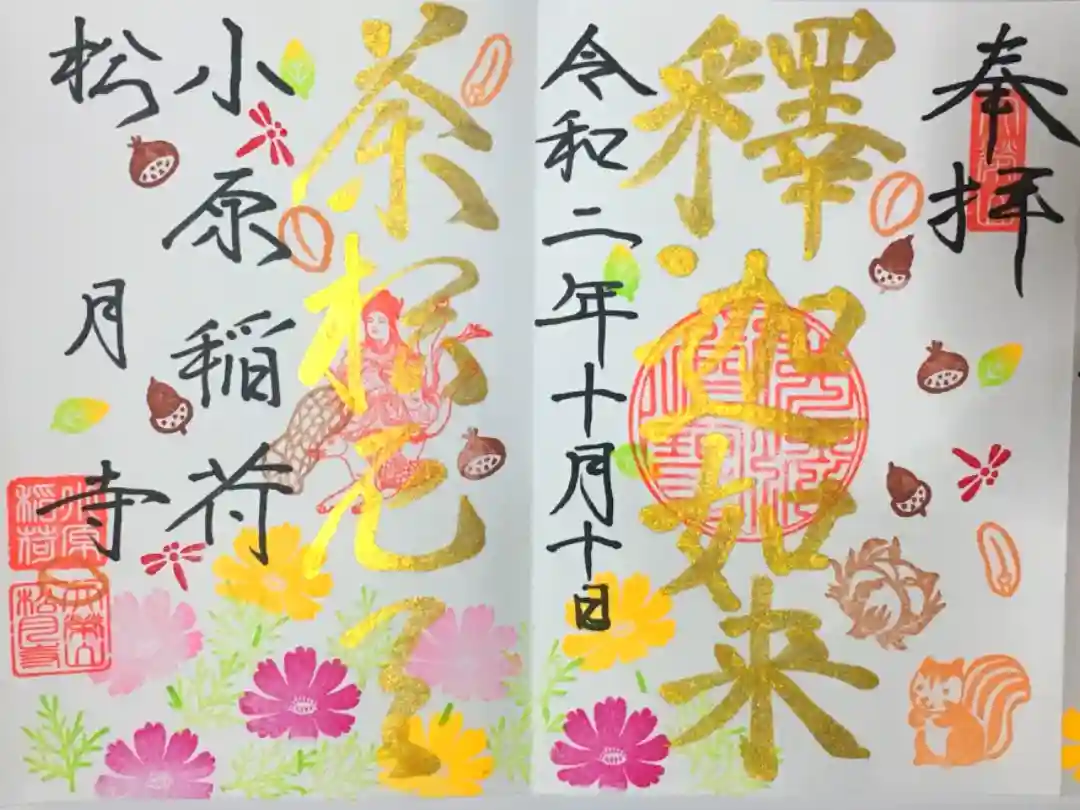 奉拝
釋迦如来
令和二年十月十日
茶枳尼天
小原稲荷
松月寺
小原
稲荷